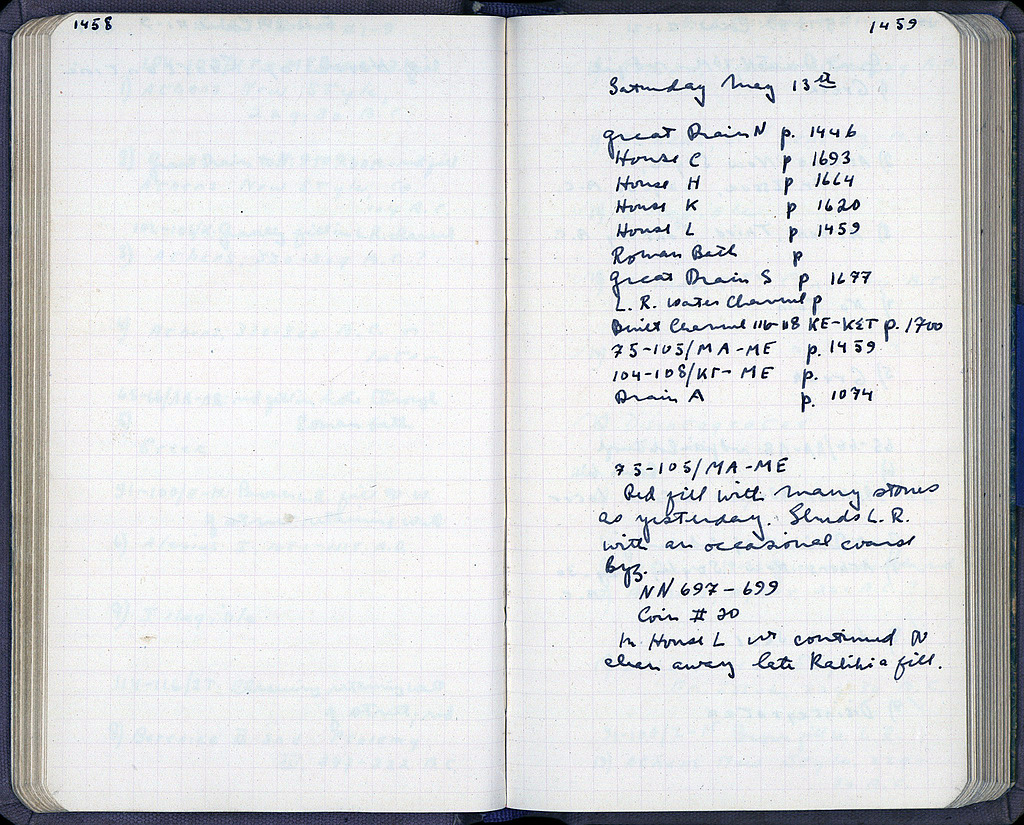 1458
1459
Saturday May 13th
Great Drain N p. 1446
House C p 1693
House H p 1664
House K p 1620
House L p 1459
Roman Bath p
Great Drain S p 1677
L.R. Water Channel p
Built Channel 116-118 KE-KET p. 1700
75-105/MA-ME p. 1459
104-108/KΓ-ME p.
Drain A p. 1074
75-105/MA-ME
Red fill with many stones
as yesterday. Sherds L.R.
with an occasional coarse
byz.
NN 697-699
Coin # 20
In House L we continued to
clean away late Kalihia fill.